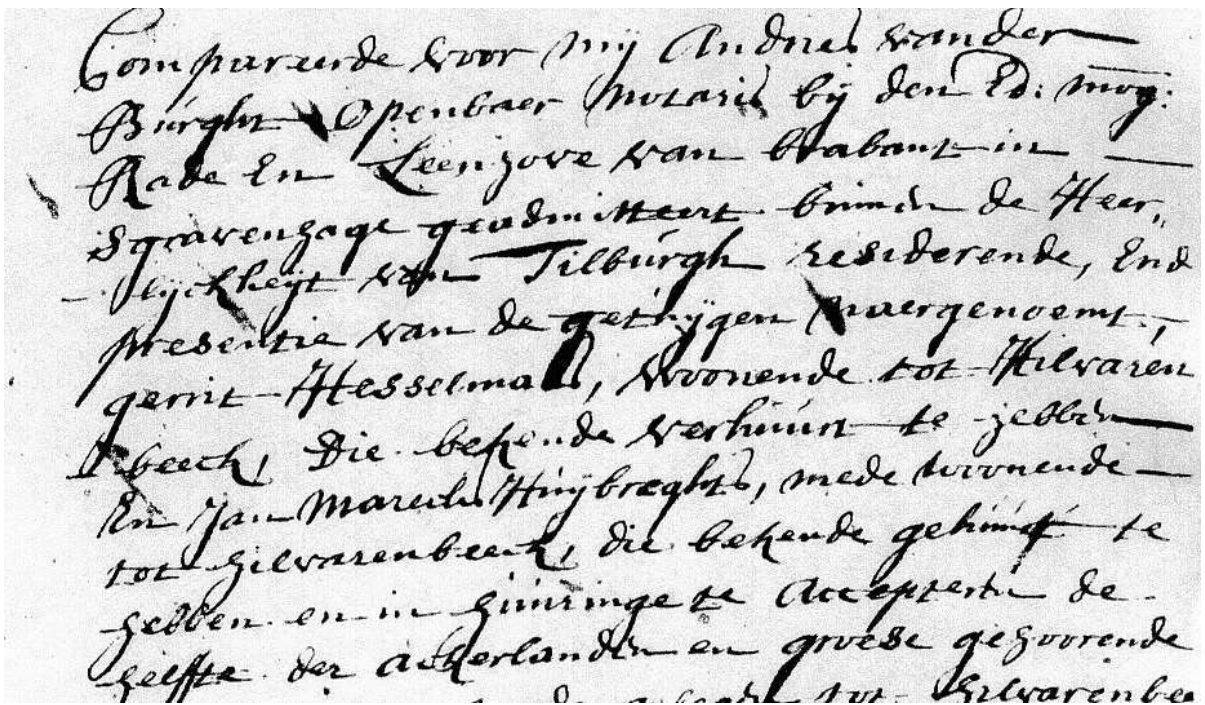 Compareerde voor mij Andries vander
Burght Openbaer Notaris bij den Ed: mog:
Rade En Leenhove van brabant in
Sgravenhage geadmitteert binnen de Heer,
lyckheyt van Tilburgh residerende, End
presentie van de getuygen naergenoemt,
gerrit Hesselmans, woonende tot Hilvaren
beeck, Die bekende verhuurt te hebben
En Jan Marcelis Huijbreghts, mede woonende
tot hilvarenbeeck, die bekende gehuurt te
hebben en in huiringe te Accepteren de
helffte der ackerlanden en groese gehoorende
tot hilvarenbee